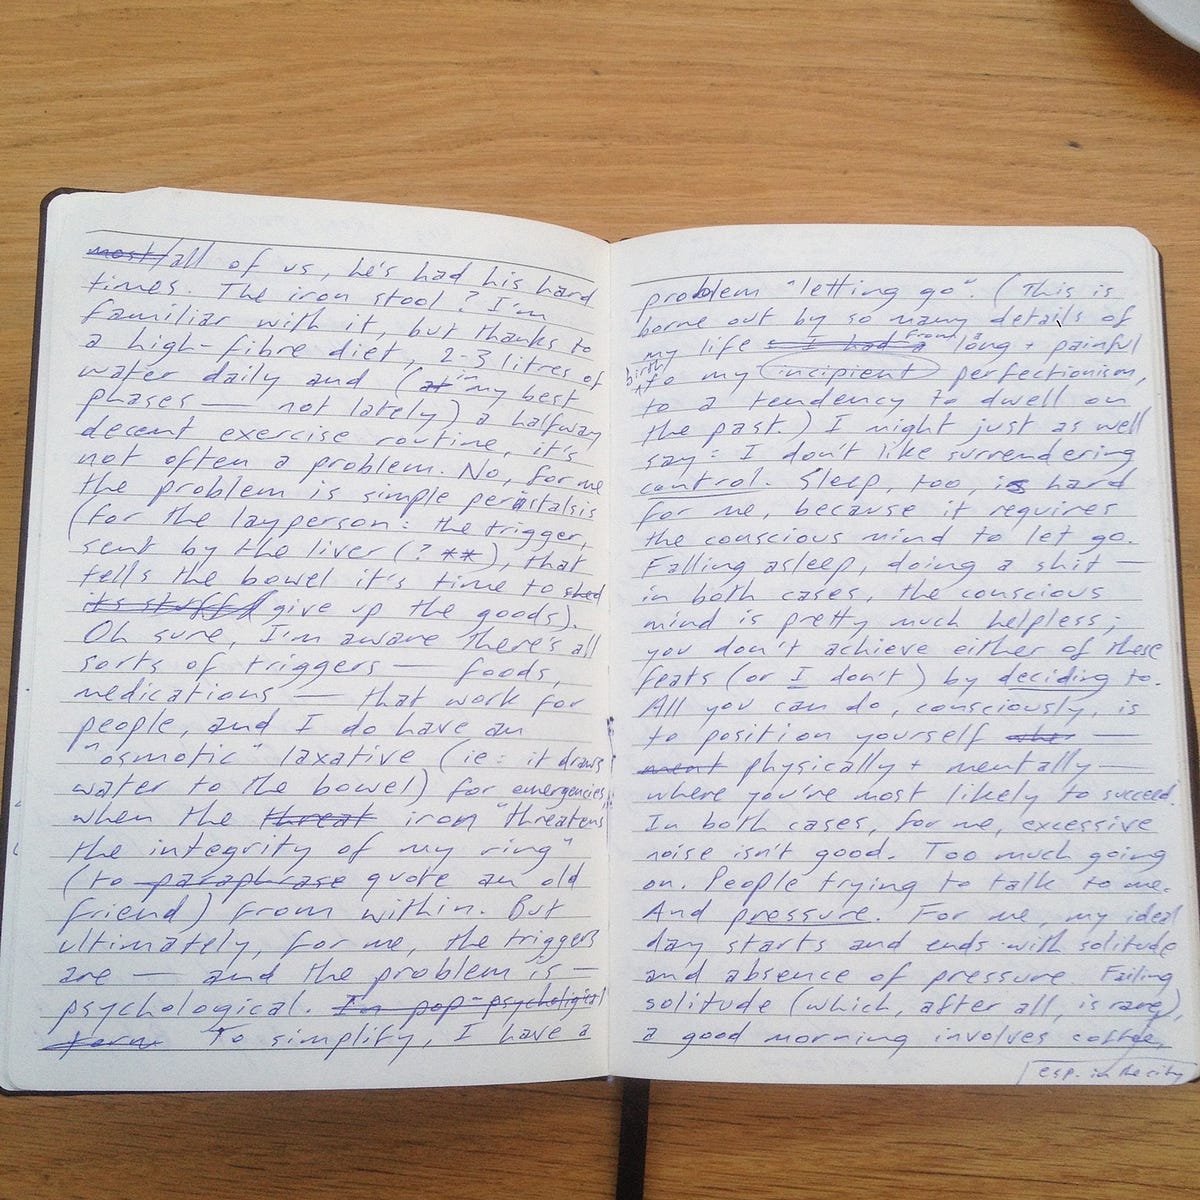 most/all of us, he's had his hard
times. The iron stool? I'm
familiar with it, but thanks to
a high-fibre diet, 2-3 litres of
water daily and (at in my best
phases — not lately) a halfway
decent exercise routine, it's
not often a problem. No, for me
the problem is simple peristalsis
(for the layperson: the trigger,
sent by the liver (? **), that
tells the bowel it's time to shed
its stuff give up the goods).
Oh sure, I'm aware there's all
sorts of triggers — foods,
medications — that work for
people, and I do have an
"osmotic" laxative (ie: it draws
water to the bowel) for emergencies,
when the threat iron "threatens
the integrity of my ring"
(to paraphrase quote an old
friend) from within. But
ultimately, for me, the triggers
are — and the problem is —
psychological. In pop-psychological
terms To simplify, I have a
problem "letting go". (This is
borne out by so many details of
my life - I had a from long + painful
birth to my incipient perfectionism,
to a tendency to dwell on
the past.) I might just as well
say: I don't like surrendering
control. Sleep, too, is hard
for me, because it requires
the conscious mind to let go.
Falling asleep, doing a shit —
in both cases, the conscious
mind is pretty much helpless;
you don't achieve either of these
feats (or I don't) by deciding to.
All you can do, consciously, is
to position yourself —
ment physically + mentally —
where you're most likely to succeed.
In both cases, for me, excessive
noise isn't good. Too much going
on. People trying to talk to me.
And pressure. For me, my ideal
day starts and ends with solitude
and absence of pressure. Failing
solitude (which, after all, is rare),
a good morning involves coffee,
esp. in the city